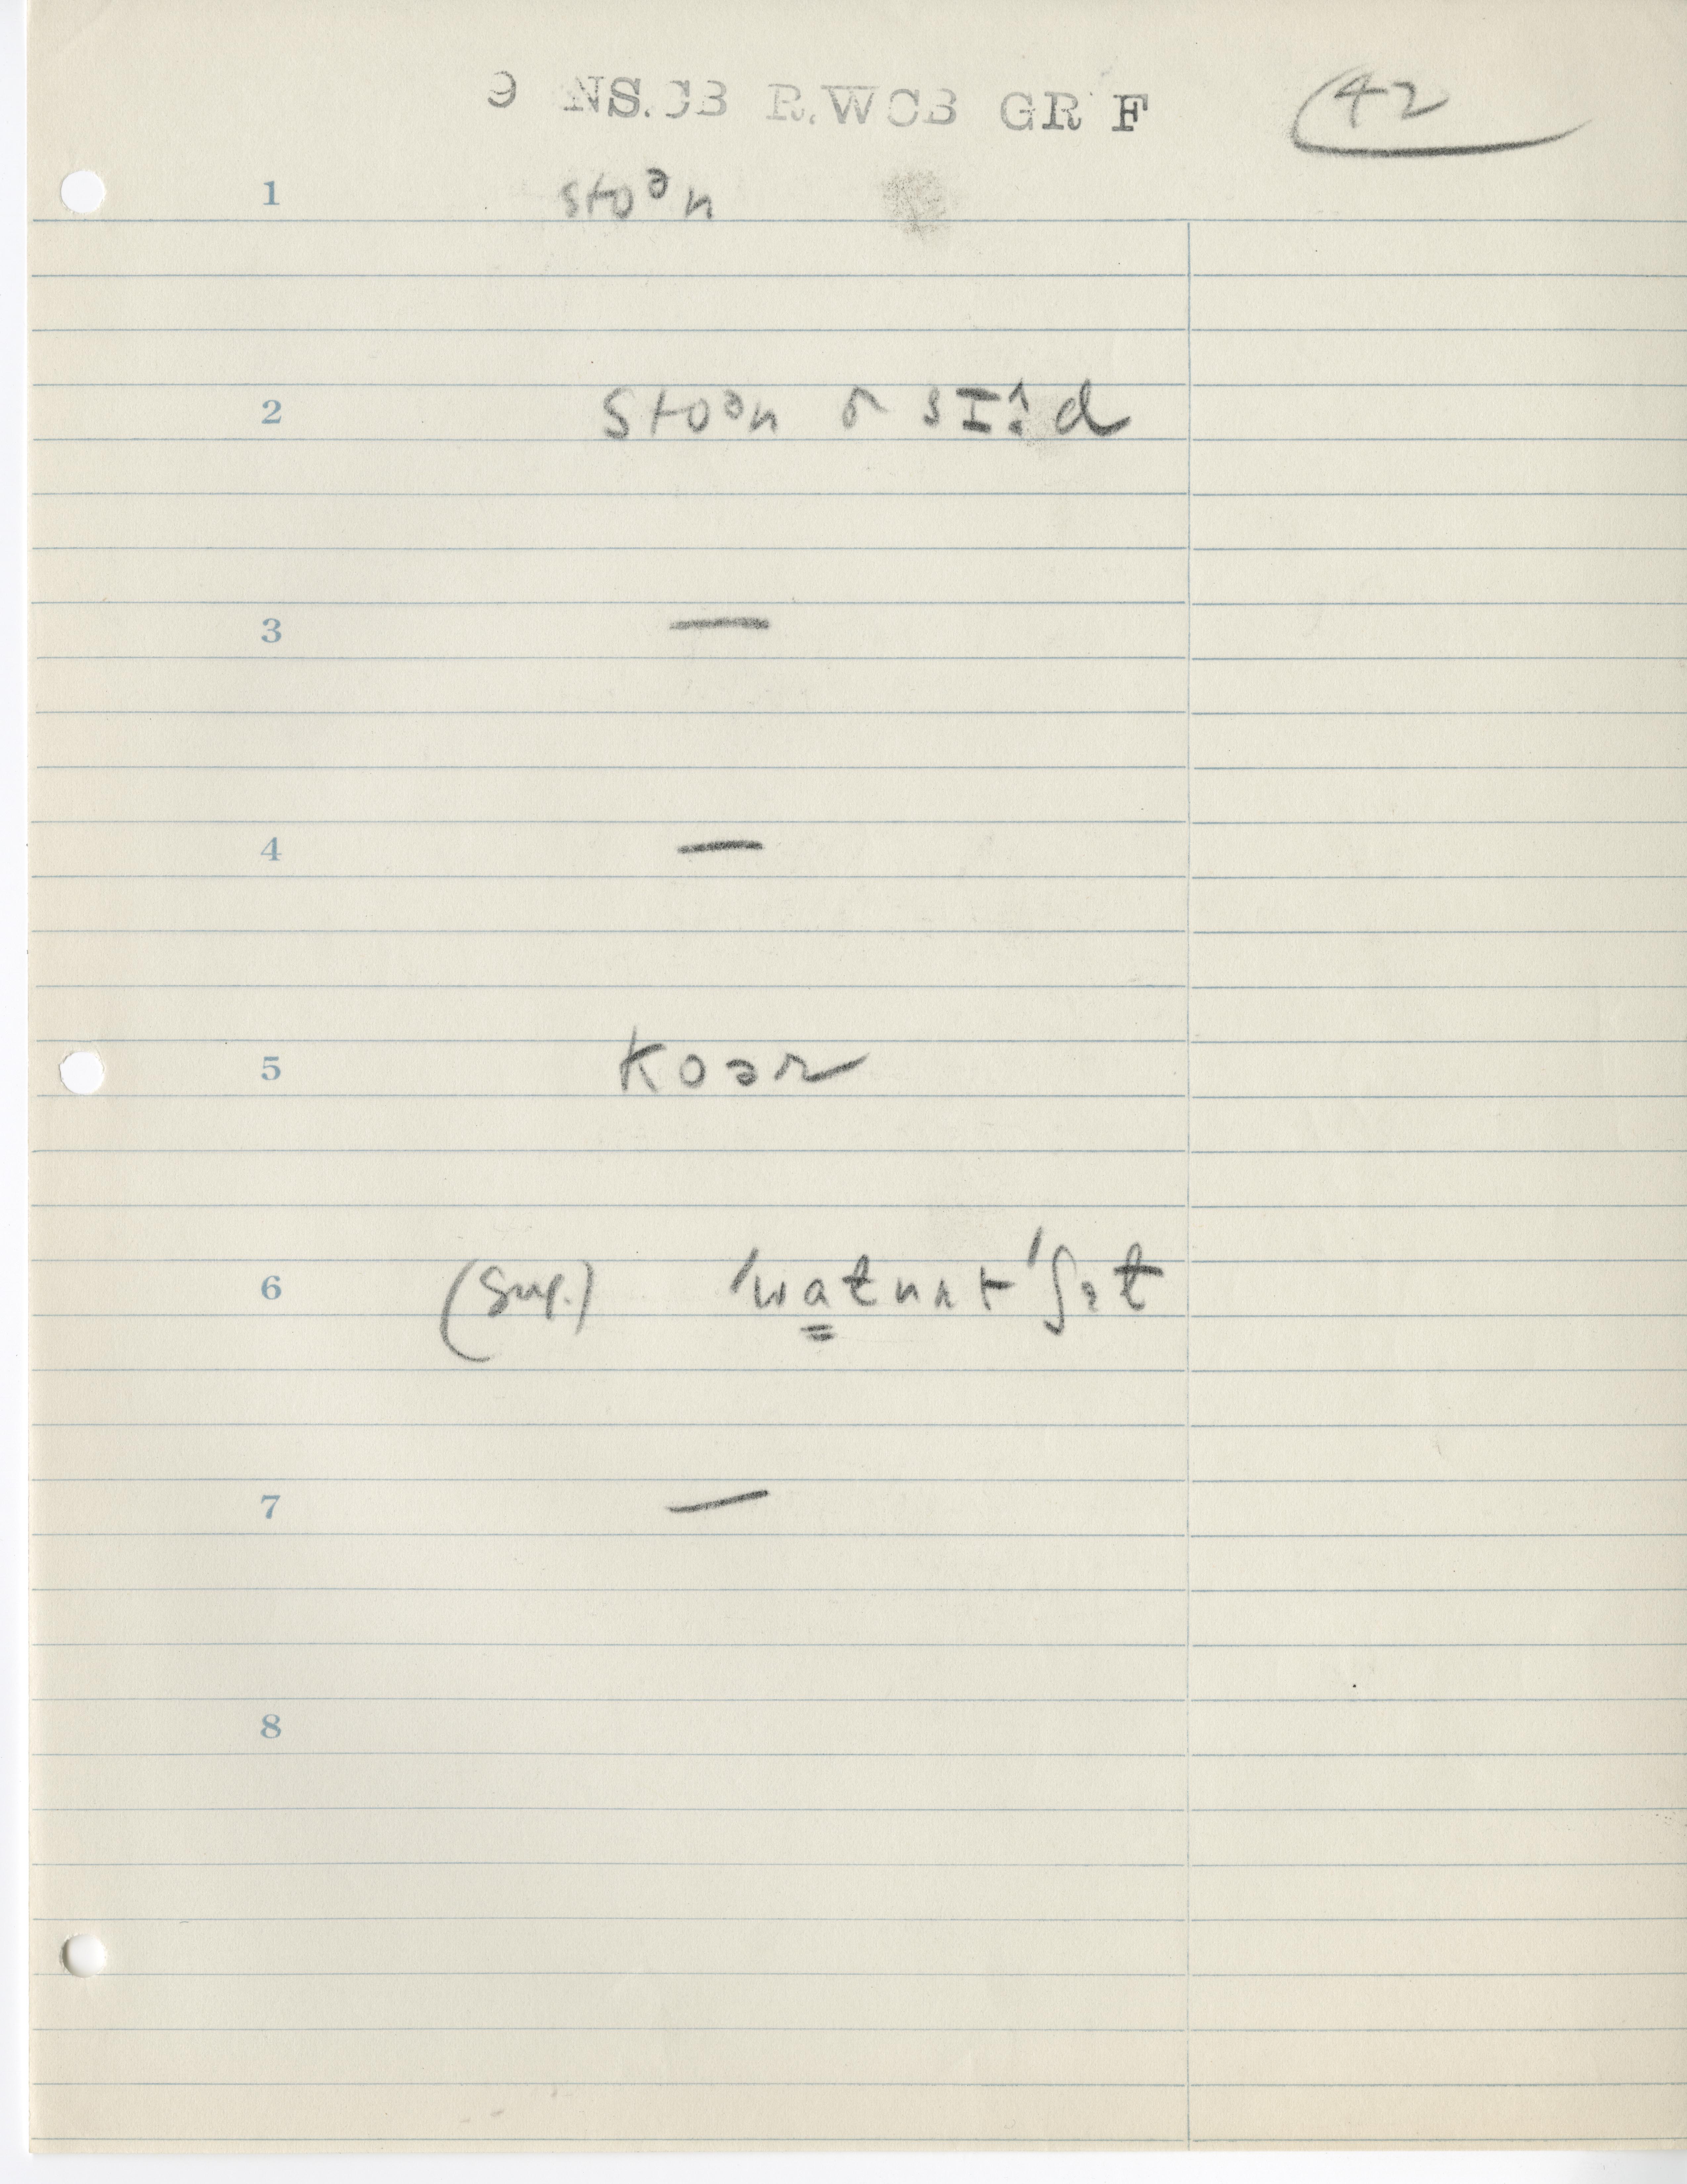 9 NS.CB R.WCB GR F 42
1 stoᵊn
2 stoᵊn ɚ sIid
3 —
4 —
5 koər
6 (sug.) 'wat̬nʌt 'ʃɛt̬
7 —
8